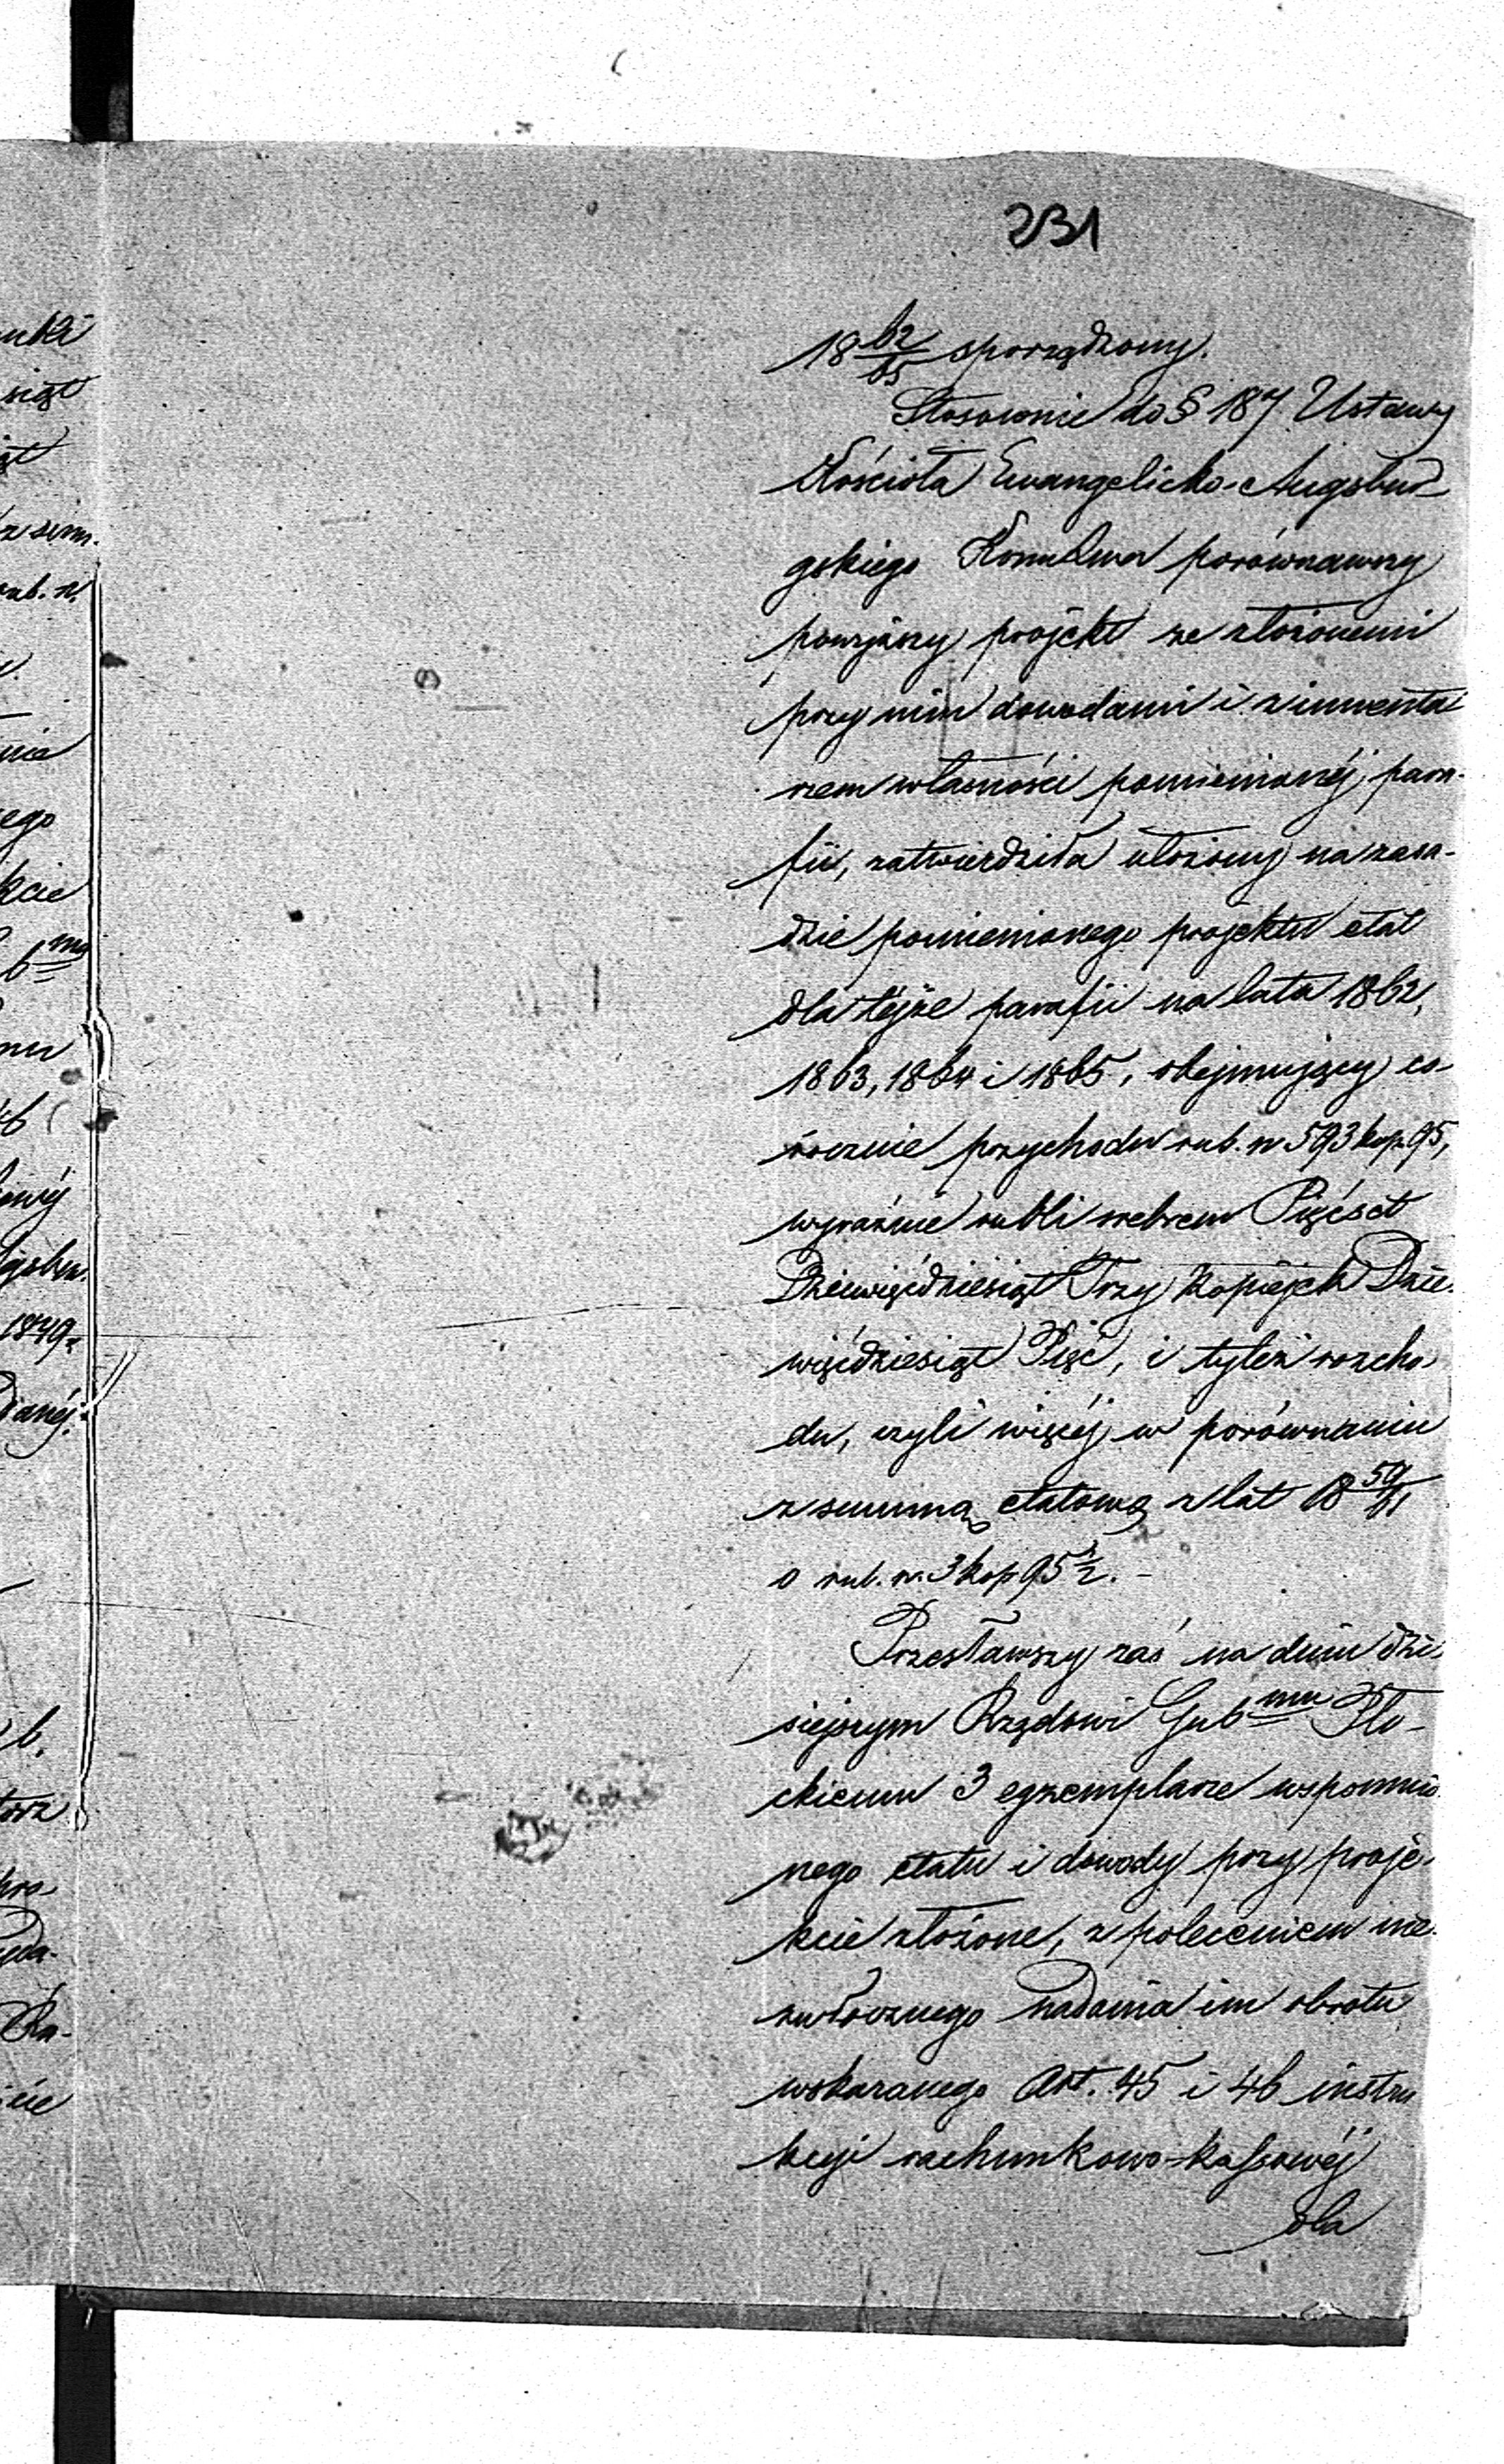 231
18 62/65 sporządzony.
Stosownie do § 187 Ustawy
Kościoła Ewangelicko-Augsbur-
gskiego porównawszy
powyższy projekt ze złożonemi
przy nim dowodami i z inwenta
rzem własności pomienionéj para-
fii, zatwierdziła ułożony na zasa-
dzie pomienionego projektu etat
dla téjże parafii na lata 1862,
1863, 1864 i 1865, obejmujący co-
rocznie przychodu rub. sr. 593 kop. 95,
wyraźnie rubli srebrem Pięćset
Dziewięćdziesiąt Trzy kopiejek Dzie-
więćdziesiąt Pięć, i tyleż rozcho-
du, czyli więcéj w porównaniu
z summą etatową z lat 18 59/61
o rub. sr. 3 kop 95 1/2. -
Przesławszy zaś na dniu dzi-
siejszym Rządowi Gubmu Pło-
ckiemu 3 egzemplarze wspomnio
nego etatu i dowody przy proje-
kcie złożone, z poleceniem nie-
zwłocznego nadania im obrotu
wskazanego Art. 45 i 46 instru
kcyi rachunkowo-kassowéj
dla